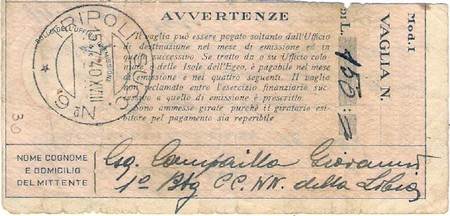 AVVERTENZE
Il vaglia può essere pagato soltanto dall'Ufficio
di destinazione nel mese di emissione ed in
quello successivo. Se tratto da o su Ufficio colo-
niale o delle Isole dell'Egeo, è pagabile nel mese
di emissione e nei quattro seguenti. Il vaglia
non reclamato entro l'esercizio finanziario suc-
cessivo a quello di emissione è prescritto.
Sono ammesse girate purchè il giratario esi-
bitore pel pagamento sia reperibile
TRIPOLI
No 6
30
Mod. I
VAGLIA N.
di L. 150
NOME COGNOME
E DOMICILIO
DEL MITTENTE
Giovanni
1° Btg CC. NN. della Libia